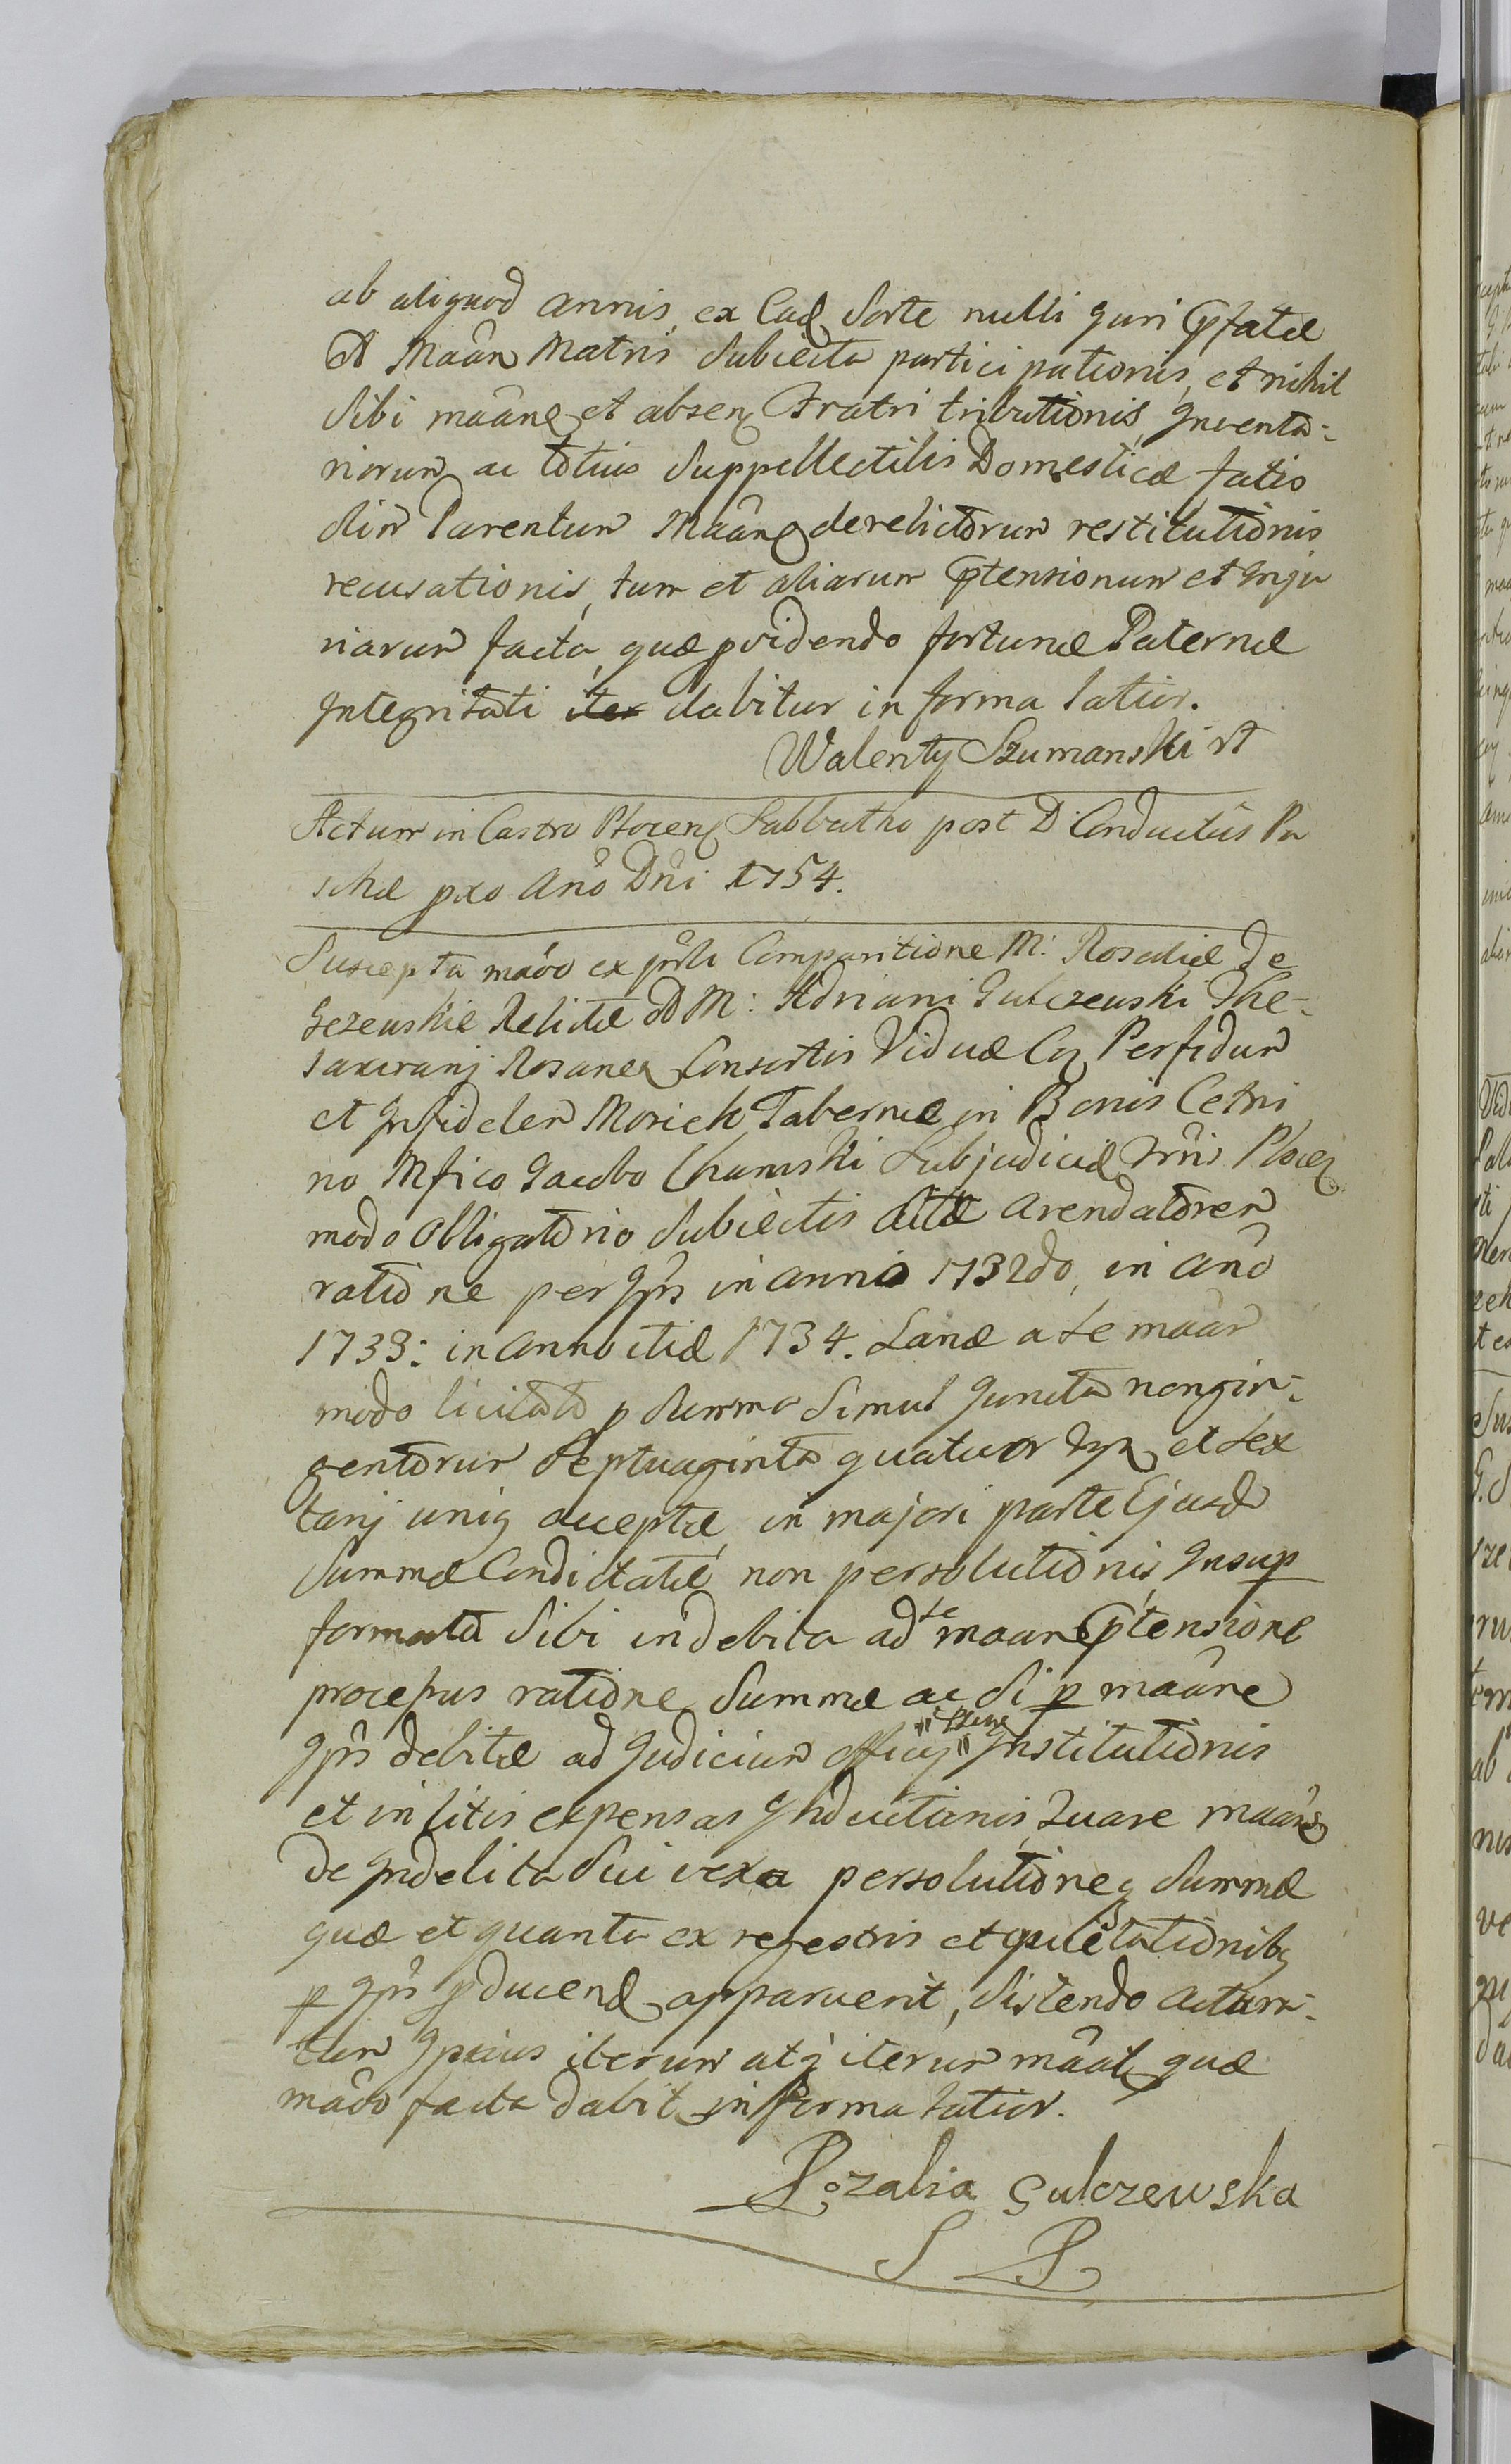 ab aliquod annis, ex Ead Sorte nulli Juri Pfatæ
D Maãn Matris Subiecta participationis, et nihil
Sibi maãne et absen Fratri tributionis, Inventa-
riorum ac totius Suppellectilis Domesticæ fatis
olim Parentum Maãne derelictorum restitutionis
recusationis, tum et aliarum Ptensionum et Inju
riarum facta, quæ pvidendo fortunæ Paternæ
Integritati iter dabitur in forma latior.
Walenty Szumanski
Actum in Castro Plocen Sabbatho post D Conductus Pa
schæ pxo Ano Dni 1754.
Suscepta mãõ ex pnti Comparitione M: Rosaliæ de
Jezewskie Relictæ D M: Adriani Gulczewski The-
saurarij Rosanen Consortis Viduæ Con Perfidum
et Infidelem Moriek Tabernæ in Bonis Cetni
no Mfico Jacobo Chamski Subjudicid Trnis Plocen
modo Obligatorio Subiectis Sitæ Arendatorem
ratione per Ipm in anno 1732do, in ano
1733: in anno itid 1734. Lanæ a se maãn
modo licitato p Summa Simul Juncta nongin-
gentorum Septuaginta quatuor Typ et Sex
tarij unig acceptæ, in majori parte Ejusd
Summæ Condictatæ non persolutionis, Insup
formata Sibi indebita ad se maane Ptensione
procesus ratione Summæ ac Si p maãne
Ipsi debitæ ad Judicium officij Institutionis
et in litis expensas Inductionis, Quare maãne
de Indebita Sui vexa persolutioneq Summæ
quæ et quanta ex regestris et quietationibg
p Ipm pducend apparuerit, Sistendo actura-
tum Ipsius iterum atq iterum mãat quæ
mãõ facta dabit in forma latior.
Rozalia Gulczewska
S R